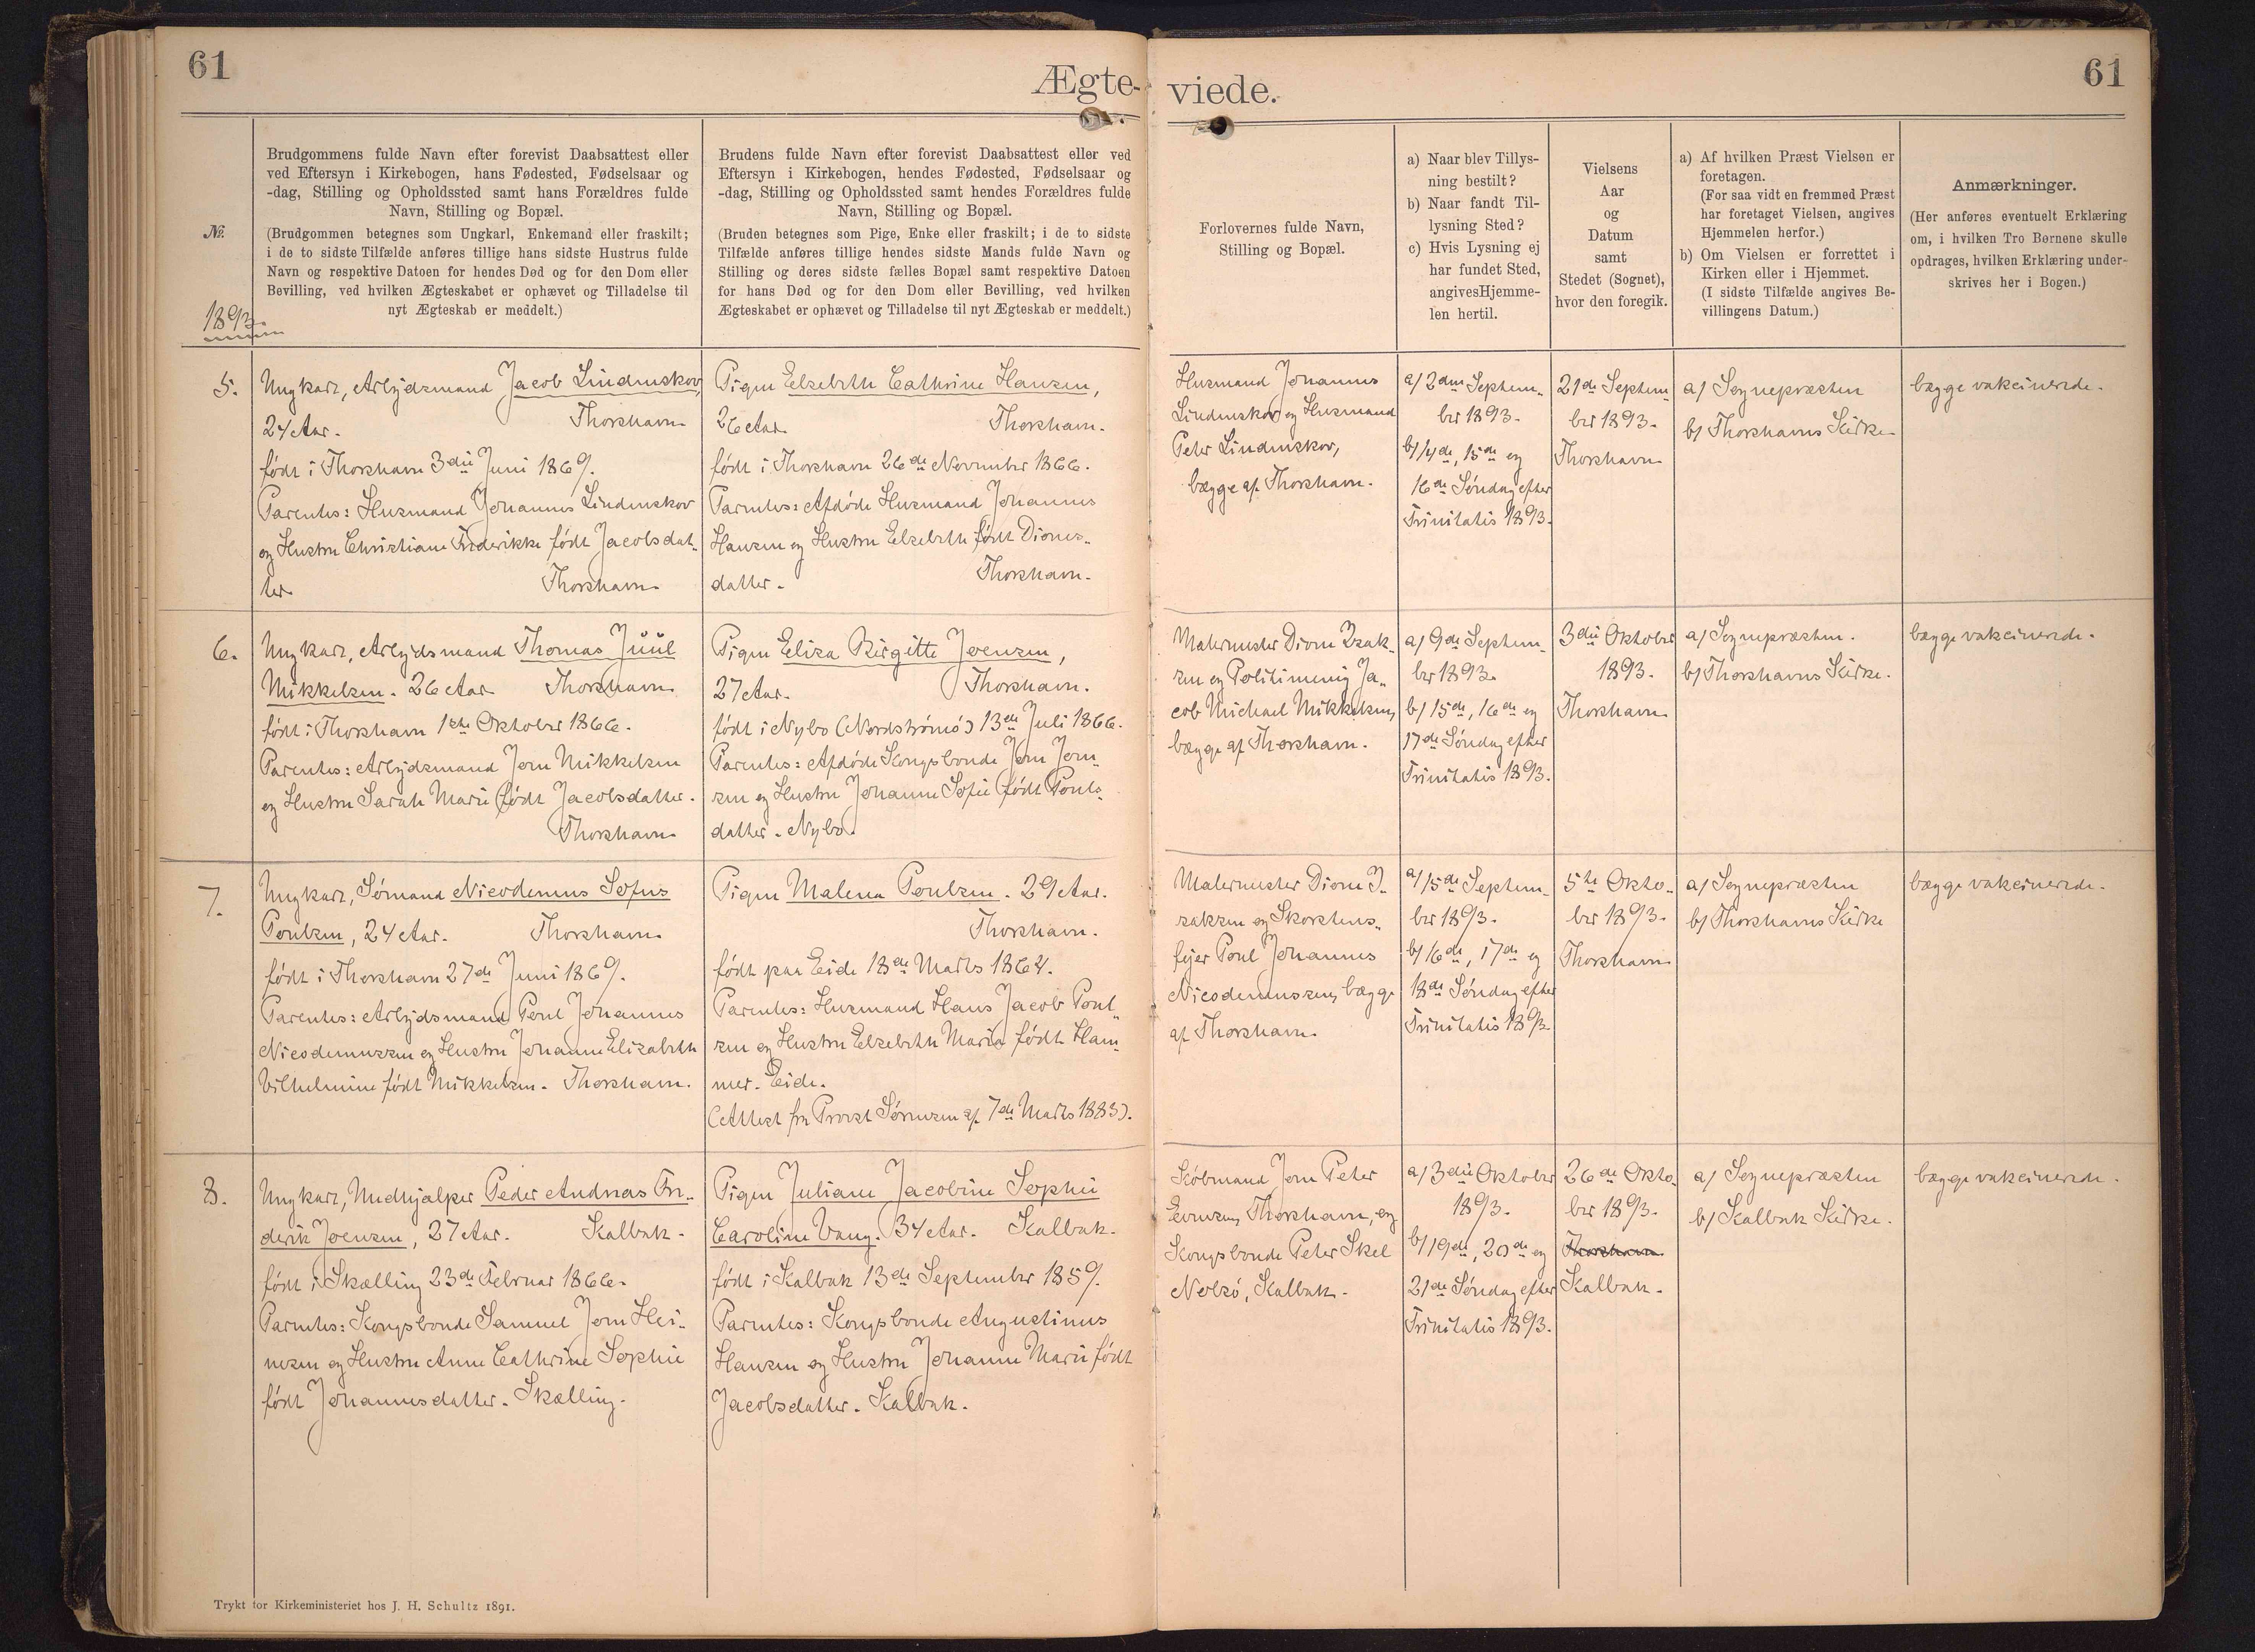 61
Ægte-
Brudgommens fulde Navn efter forevist Daabsattest eller
ved Eftersyn i Kirkebogen, hans Fødested, Fødselsaar og
-dag, Stilling og Opholdssted samt hans Forældres fulde
Navn, Stilling og Bopæl.
(Brudgommen betegnes som Ungkarl, Enkemand eller fraskilt;
i de to sidste Tilfælde anføres tillige hans sidste Hustrus fulde
Navn og respektive Datoen for hendes Død og for den Dom eller
Bevilling, ved hvilken Ægteskabet er ophævet og Tilladelse til
nyt Ægteskab er meddelt.)
Brudens fulde Navn efter forevist Daabsattest eller ved
Eftersyn i Kirkebogen, hendes Fødested, Fødselsaar og
-dag, Stilling og Opholdssted samt hendes Forældres fulde
Navn, Stilling og Bopæl.
(Bruden betegnes som Pige, Enke eller fraskilt; i de to sidste
Tilfælde anføres tillige hendes sidste Mands fulde Navn og
Stilling og deres sidste fælles Bopæl samt respektive Datoen
for hans Død og for den Dom eller Bevilling, ved hvilken
Ægteskabet er ophævet og Tilladelse til nyt Ægteskab er meddelt.)
№.
1893.
5.
Ungkarl, Arbejdsmand Jacob Lindenskov,
24 Aar. Thorshavn.
født i Thorshavn 3die Juni 1869.
Parentes: Husmand Johannes Lindenskov
og Hustru Christiane Frederikke født Jacobsdat-
ter. Thorshavn.
Pigen Elsebeth Cathrine Hansen,
26 Aar. Thorshavn.
født i Thorshavn 26de November 1866.
Parentes: Afdøde Husmand Johannes
Hansen og Hustru Elsebeth født Diones-
datter. Thorshavn.
6.
Ungkarl, Arbejdsmand Thomas Juul
Mikkelsen. 26 Aar Thorshavn.
født i Thorshavn 1ste Oktober 1866.
Parentes: Arbejdsmand Joen Mikkelsen
og Hustru Sarah Marie født Jacobsdatter.
Thorshavn.
Pigen Elisa Birgitte Joensen,
27 Aar. Thorshavn.
født i Nybo (Nordstrømø) 13de Juli 1866.
Parentes: Afdøde Kongsbonde Joen Joen-
sen og Hustru Johanne Sofie født Pouls-
datter. Nybo.
7.
Ungkarl, Sømand Nicodemus Sofus
Poulsen, 24 Aar. Thorshavn.
født i Thorshavn 27de Juni 1869.
Parentes: Arbejdsmand Poul Johannes
Nicodemussen og Hustru Johanne Elisabeth
Vilhelmine født Mikkelsen. Thorshavn.
Pigen Malena Poulsen. 29 Aar.
Thorshavn.
født paa Eide 18de Marts 1864.
Parentes: Husmand Hans Jacob Poul-
sen og Hustru Elsebeth Maria født Ham-
mer. Eide.
(Attest fra Provst Sørensen af 7de Marts 1883).
8.
Ungkarl, Udhjælper Peder Andreas Fre-
derik Joensen, 27 Aar. Kalbak.
født i Skælling 23de Februar 1866.
Parentes: Kongsbonde Samuel Joen Hei-
nesen og Hustru Anne Cathrine Sophie
født Johannesdatter. Skælling.
Pigen Juliane Jacobine Sophie
Caroline Vang. 34 Aar. Kalbak.
født i Kalbak 13de September 1859.
Parentes: Kongsbonde Augustinus
Hansen og Hustru Johanne Marie født
Jacobsdatter. Kalbak.
Trykt for Kirkeministeriet hos J. H. Schultz 1891.
viede.
61
Forlovernes fulde Navn,
Stilling og Bopæl.
a) Naar blev Tillys-
ning bestilt?
b) Naar fandt Til-
lysning Sted?
c) Hvis Lysning ej
har fundet Sted,
angives Hjemme-
len hertil.
Vielsens
Aar
og
Datum
samt
Stedet (Sognet),
hvor den foregik.
a) Af hvilken Præst Vielsen er
foretagen.
(For saa vidt en fremmed Præst
har foretaget Vielsen, angives
Hjemmelen herfor.)
b) Om Vielsen er forrettet i
Kirken eller i Hjemmet.
(I sidste Tilfælde angives Be-
villingens Datum.)
Anmærkninger.
(Her anføres eventuelt Erklæring
om, i hvilken Tro Børnene skulle
opdrages, hvilken Erklæring under-
skrives her i Bogen.)
Husmand Johannes
Lindenskov og Husmand
Peter Lindenskov,
bægge af Thorshavn.
a/ 2den Septem-
ber 1893.
b/ 14de, 15de og
16de Søndag efter
Trinitatis 1893.
21de Septem-
ber 1893.
Thorshavn.
a/ Sognepræsten
b/ Thorshavns Kirke.
bægge vakcinerede.
Malermester Dione Isak-
sen og Politimenig Ja-
cob Michael Mikkelsen,
bægge af Thorshavn.
a/ 9de Septem-
ber 1893.
b/ 15de, 16de og
17de Søndag efter
Trinitatis 1893.
3die Oktober
1893.
Thorshavn.
a/ Sognepræsten.
b/ Thorshavns Kirke.
bægge vakcinerede.
Malermester Dione I-
saksen og Skorstens-
fejer Poul Johannes
Nicodemussen, bægge
af Thorshavn.
a/ 15de Septem-
ber 1893.
b/ 16de, 17de og
18de Søndag efter
Trinitatis 1893.
5te Okto-
ber 1893.
Thorshavn.
a/ Sognepræsten
b/ Thorshavns Kirke
bægge vakcinerede.
Købmand Joen Peter
Evensen, Thorshavn, og
Kongsbonde Peter Skel
Nolsø, Kalbak.
a/ 3die Oktober
1893.
b/ 19de, 20de og
21de Søndag efter
Trinitatis 1893.
26de Okto-
ber 1893.
Thorshavn
Kalbak.
a/ Sognepræsten
b/ Kalbak Kirke.
bægge vakcinerede.